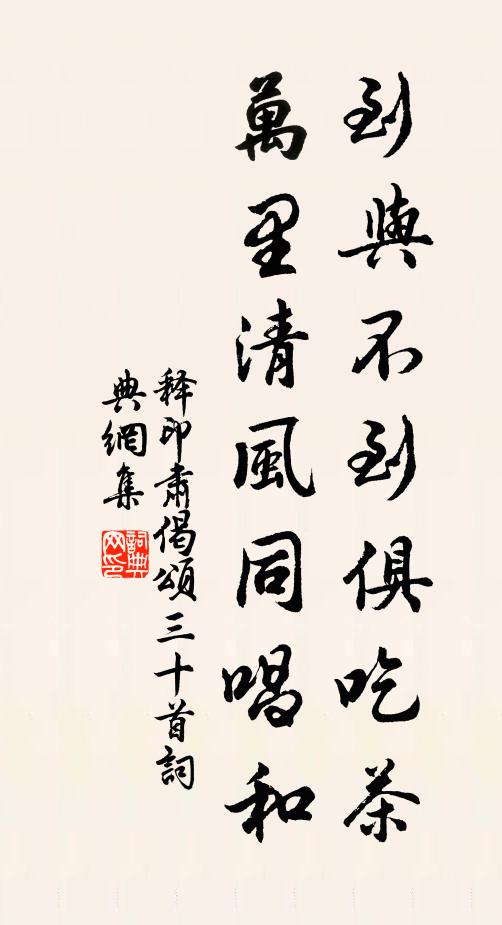 到與不到俱吃茶
萬里清風同唱和
釋印肅偈頌三十首詞
典網集
詞典网印